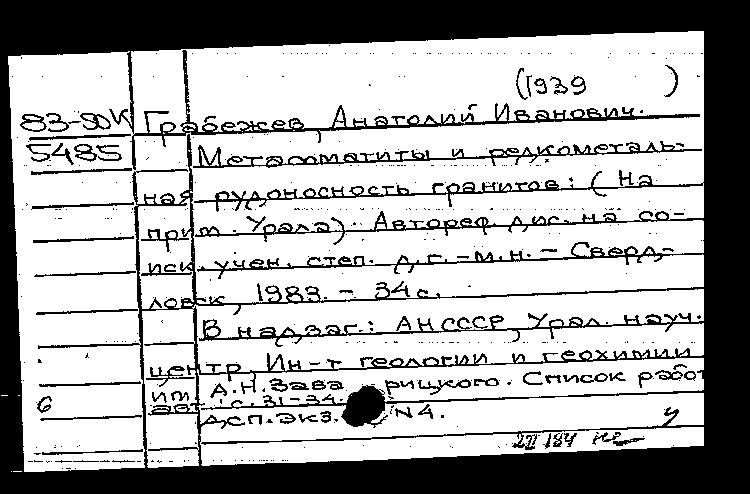 (1939 )
83-50К Грабежев, Анатолий Иванович.
5485 Метасоматиты и редкометаль-
ная рудоносность гранитов: (На
прим. Урала). Автореф. дис. на со-
иск. учен. степ. д.г.-м.н. - Сверд-
ловск, 1983. - 34 с.
В надзаг.: АН СССР, Урал. науч.
центр, Ин-т геологии и геохимии
им. А.Н. Заварицкого. Список работ
авт.: с. 31-34.
б Дсп. экз. N4.